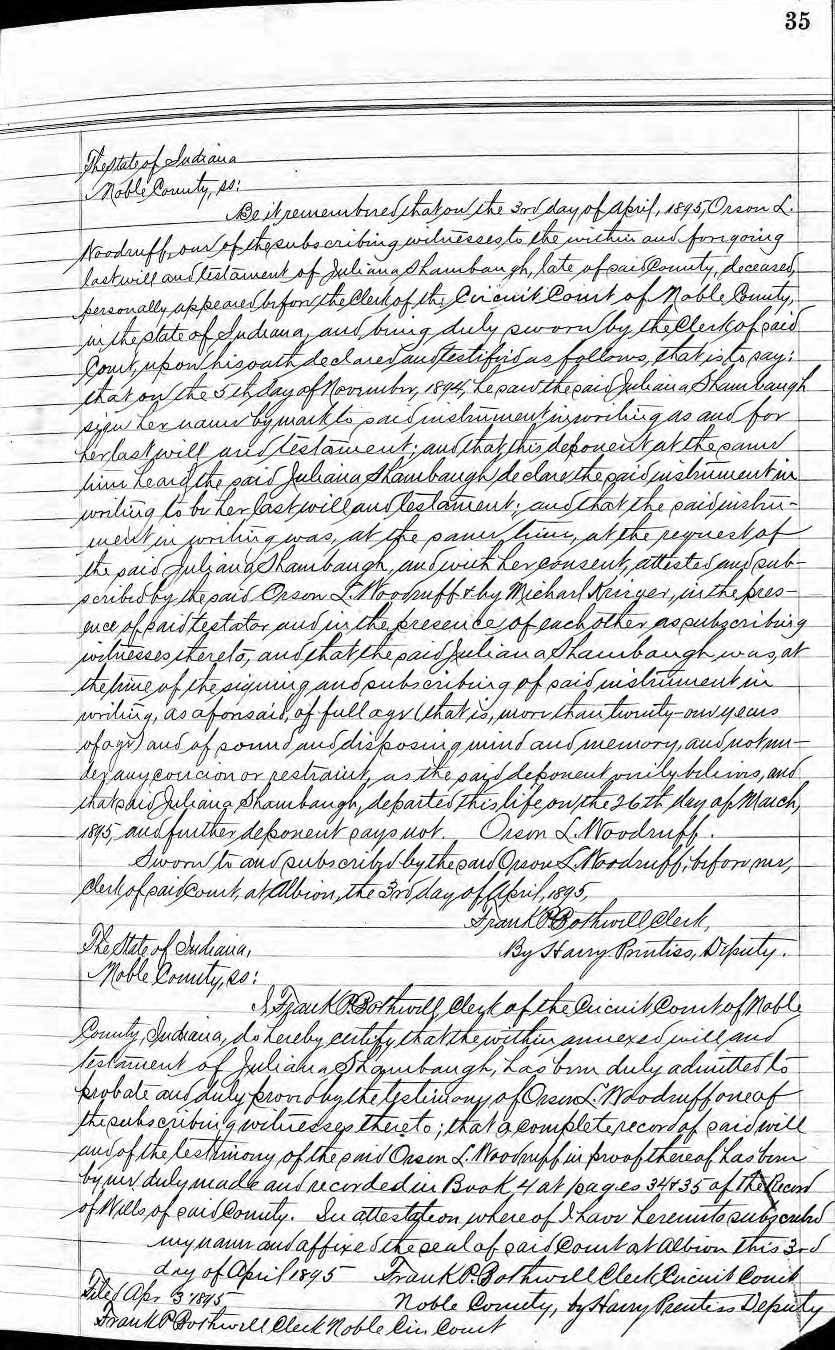 35
The State of Indiana
Noble County, ss:
Be it remembered that on the 3rd day of April, 1895, Orson L.
Woodruff, one of the subscribing witnesses to the within and foregoing
last will and testament of Juliana Shambaugh, late of said County, deceased,
personally appeared before the Clerk of the Circuit Court of Noble County,
in the State of Indiana, and being duly sworn by the Clerk of said
Court, upon his oath declared and testified as follows, that is to say:
that on the 5th day of November, 1894, he saw the said Juliana Shambaugh
sign her name by mark to said instrument in writing as and for
her last will and testament; and that this deponent at the same
time heard the said Juliana Shambaugh declare the said instrument in
writing to be her last will and testament; and that the said instru-
ment in writing was, at the same time, at the request of
the said Juliana Shambaugh, and with her consent, attested and sub-
scribed by the said Orson L. Woodruff & by Michael Krieger, in the pres-
ence of said testator and in the presence of each other as subscribing
witnesses thereto, and that the said Juliana Shambaugh was, at
the time of the signing and subscribing of said instrument in
writing, as aforesaid, of full age (that is, more than twenty-one years
of age) and of sound and disposing mind and memory, and not un-
der any coercion or restraint, as the said deponent verily believes, and
that said Juliana Shambaugh, departed this life on the 26th day of March,
1895, and further deponent says not. Orson L. Woodruff.
Sworn to and subscribed by the said Orson L. Woodruff, before me,
Clerk of said Court, at Albion, the 3rd day of April, 1895,
Frank P. Bothwell Clerk,
By Harry Prentiss, Deputy.
The State of Indiana,
Noble County, ss:
I, Frank P. Bothwell, Clerk of the Circuit Court of Noble
County, Indiana, do hereby certify that the within annexed will and
testament of Juliana Shambaugh, has been duly admitted to
probate and duly proved by the testimony of Orson L. Woodruff one of
the subscribing witnesses thereto; that a complete record of said will
and of the testimony of the said Orson L. Woodruff in proof thereof has been
by me duly made and recorded in Book 4 at pages 34 & 35 of the Record
of Wills of said County. In attestation whereof I have hereunto subscribed
my name and affixed the seal of said Court at Albion this 3rd
day of April 1895 Frank P. Bothwell Clerk Circuit Court
Noble County, by Harry Prentiss Deputy
Filed Apr 3 1895
Frank P. Bothwell Clerk Noble Cir Court